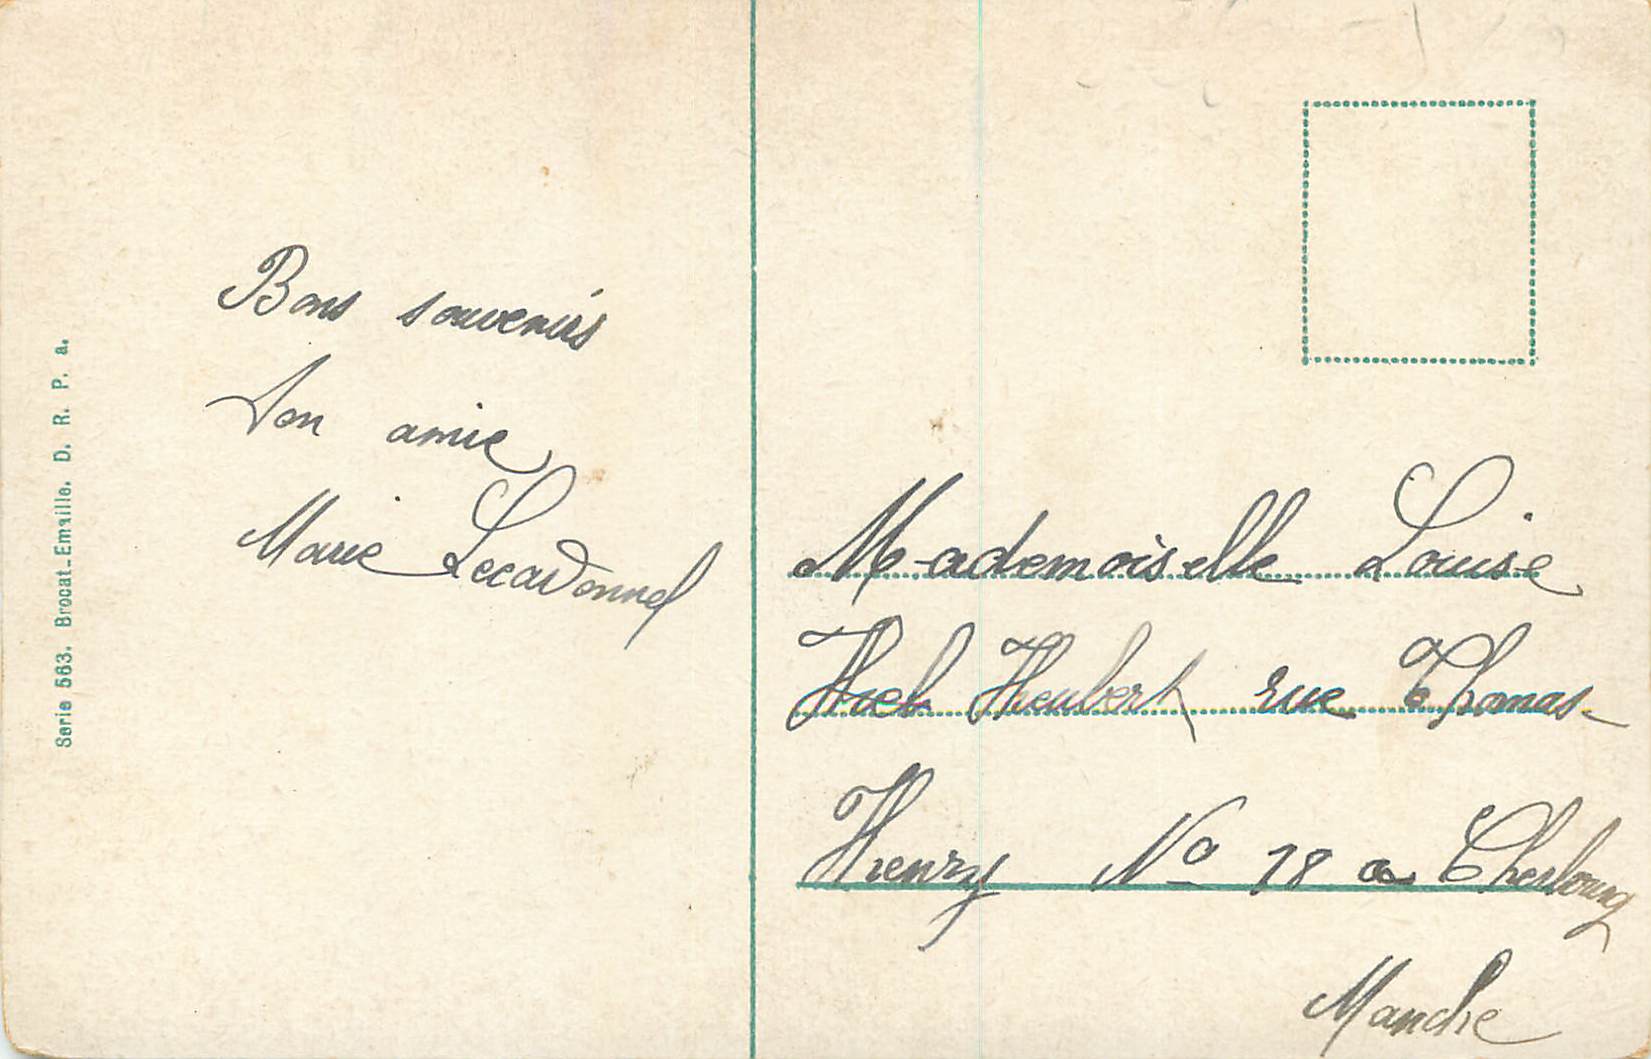 Serie 563. Brocat-Emaille. D. R. P. a.
Bons souvenirs
Ton amie
Marie Lecavonnel
Mademoiselle Louise
Hubert rue Thomas
Henry No 18 a Cherbourg
Manche